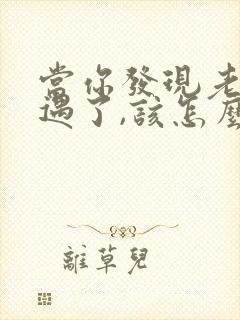 當你發現老
過了,該怎麼
離草兒